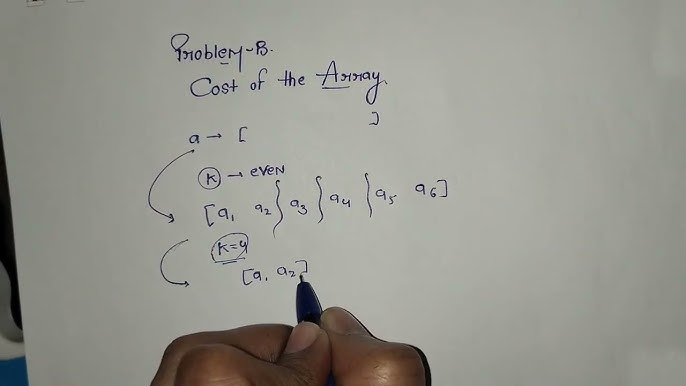 Problem-B.
Cost of the Array.
a → [ ]
K → even
[a₁ a₂ } a₃ } a₄ } a₅ a₆]
K=4
[a₁ a₂]